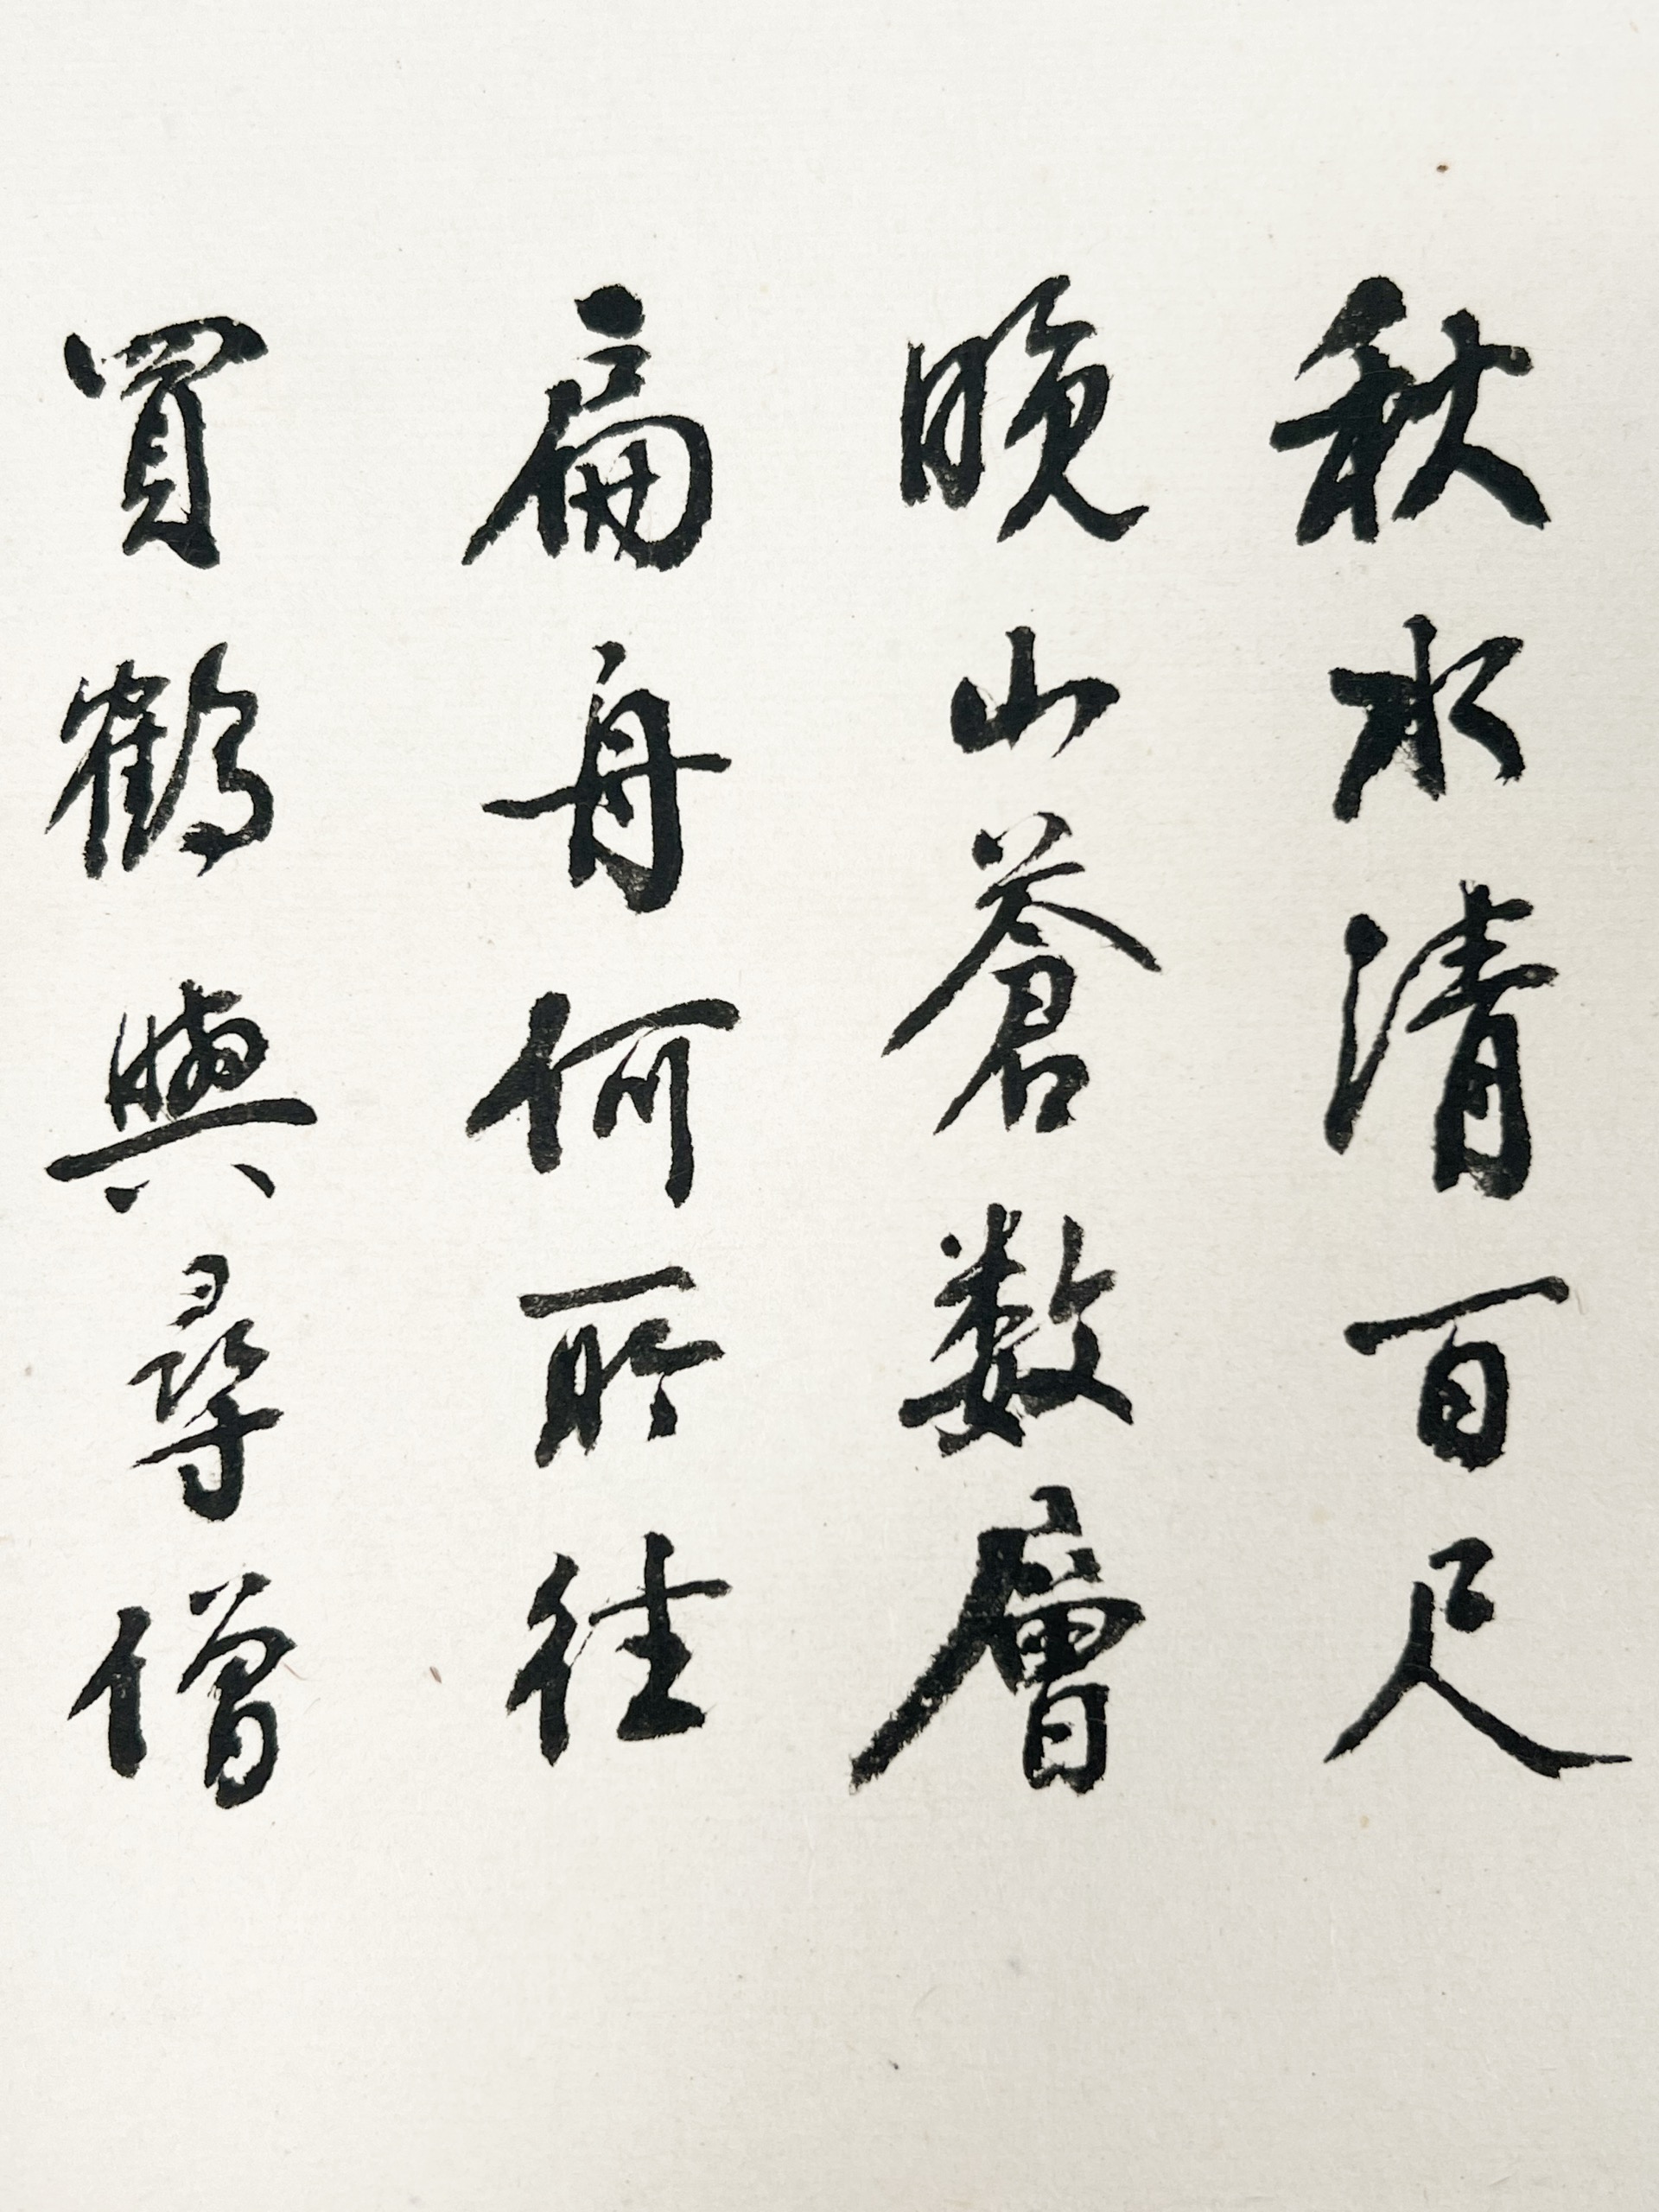 秋水清百尺
晚山蒼数層
扁舟何所往
買鶴與尋僧